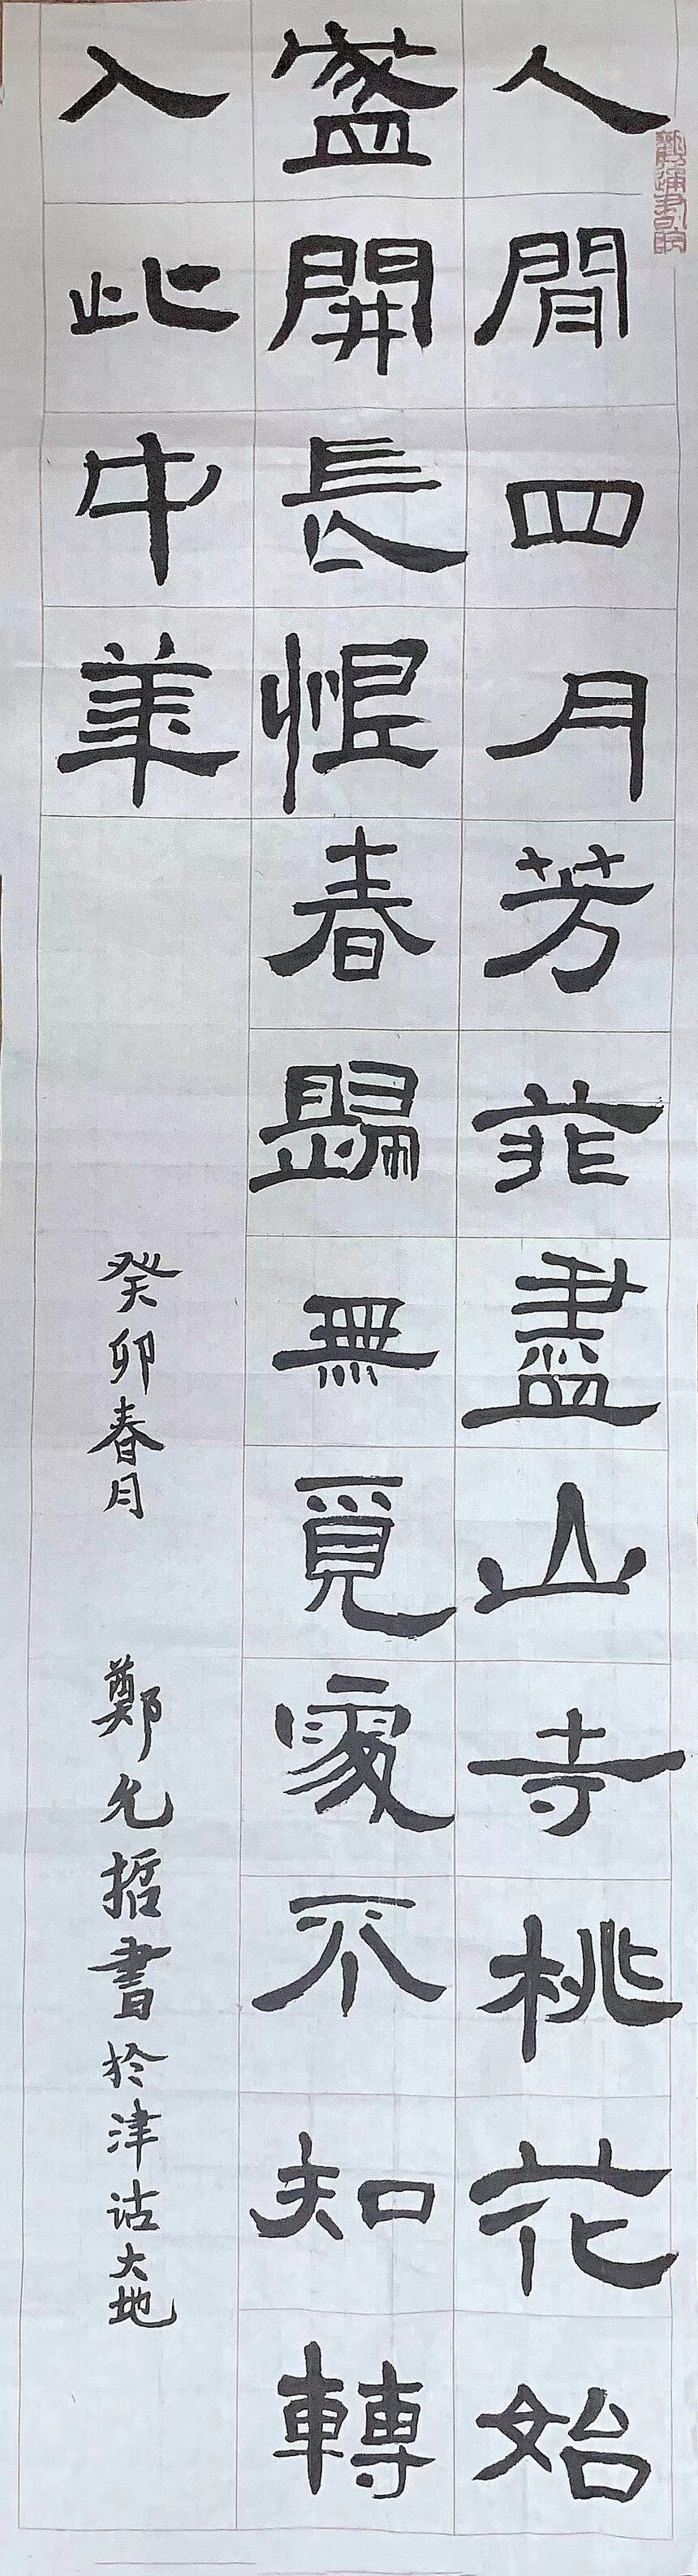 人間四月芳菲盡山寺桃花始
盛開長恨春歸無覓處不知轉
入此中來
癸卯春月 鄭允哲書於津沽大地